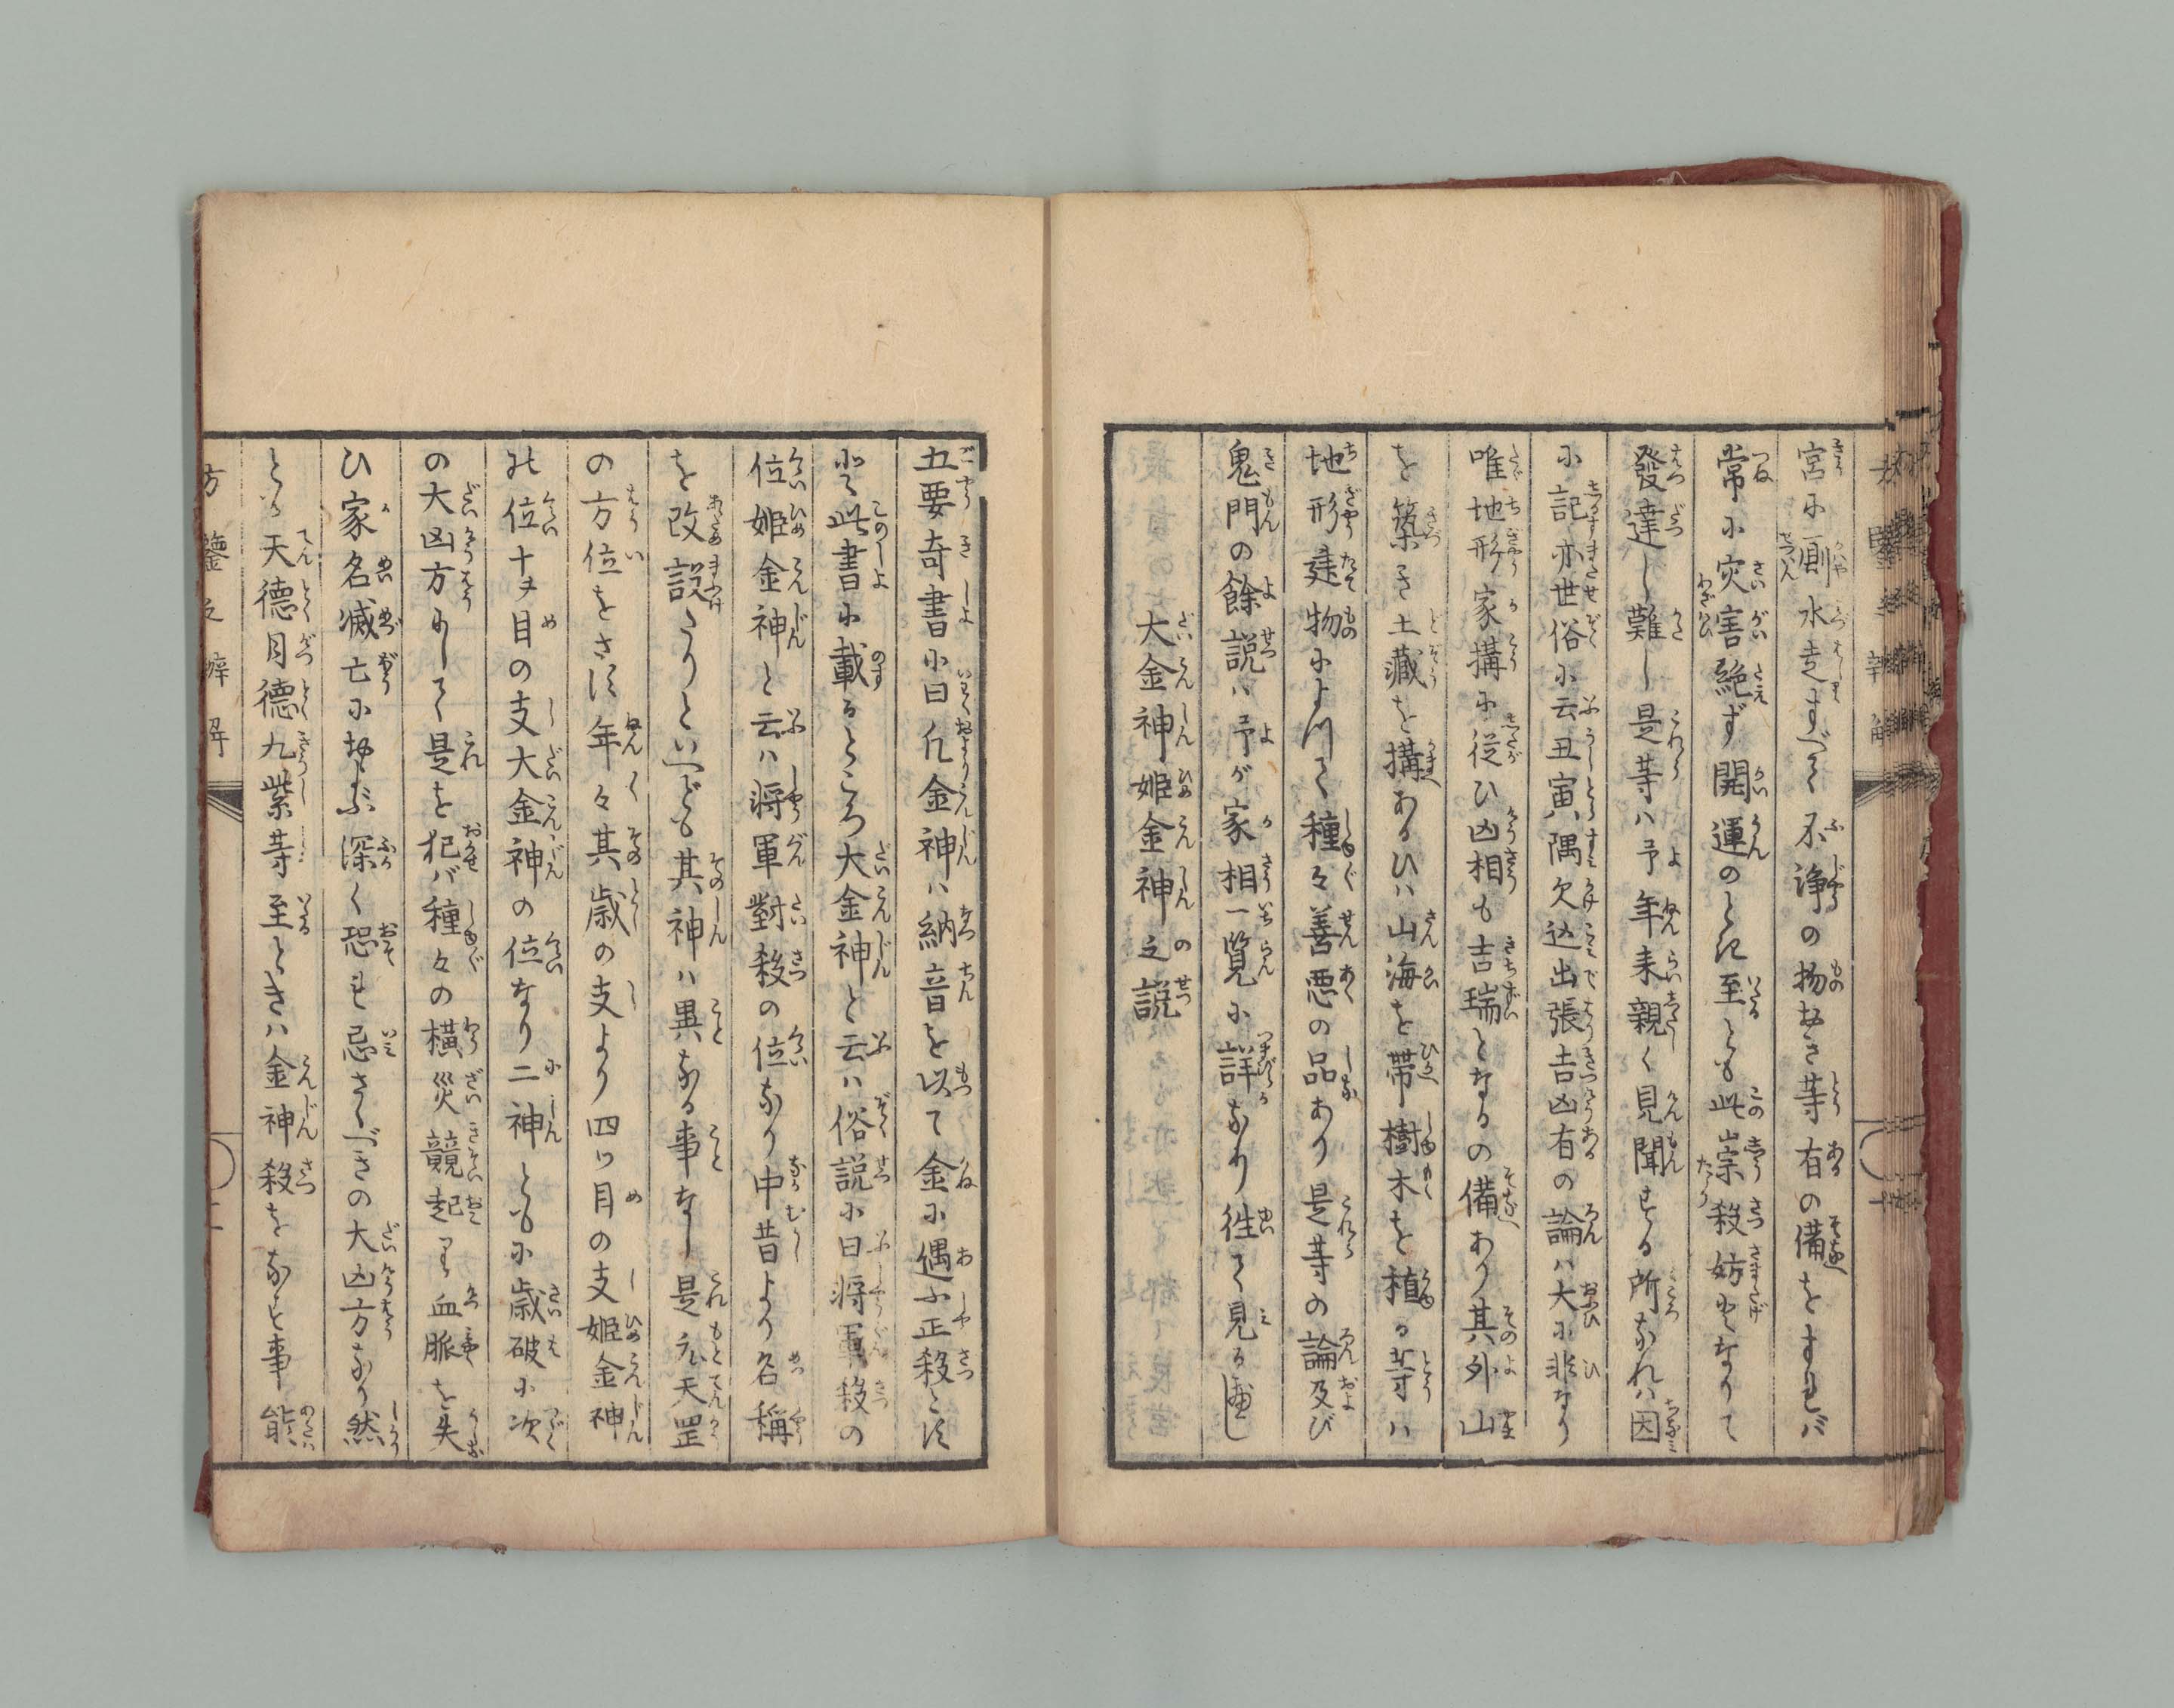 宮に厠水走すべて不浄の物おき等有の備をすれバ
常に灾害絶ず開運のとき至とも此祟殺妨せなりて
發達し難し是等ハ予年来親く見聞する所なれハ因
に記亦世俗に云丑寅隅欠込出張吉凶有の論ハ大に非なり
唯地形家搆に従ひ凶相も吉瑞となるの備あり其外山
を築き土藏を搆あるひハ山海を帯樹木を植る等ハ
地形建物によつて種々善悪の品あり是等の論及び
鬼門の餘説ハ予が家相一覧に詳なり徃て見る
大金神姫金神之説
五要奇書に曰凡金神ハ納音を以て金に遇ふ正殺とす
此書に載るところ大金神と云ハ俗説に曰将軍殺の
位姫金神と云ハ将軍對殺の位なり中昔より名稱
を改設たりといへども其神ハ異なる事なし是元天罡
の方位をさす年々其歳の支より四ツ目の支姫金神
の位十ヲ目の支大金神の位なり二神ともに歳破に次
の大凶方にして是を犯バ種々の横災競起り血脈を失
ひ家名滅亡に及ぶ深く恐れ忌さくべきの大凶方なり然
とも天德月德九紫等至ときハ金神殺をなす事能
方鑒之辨解